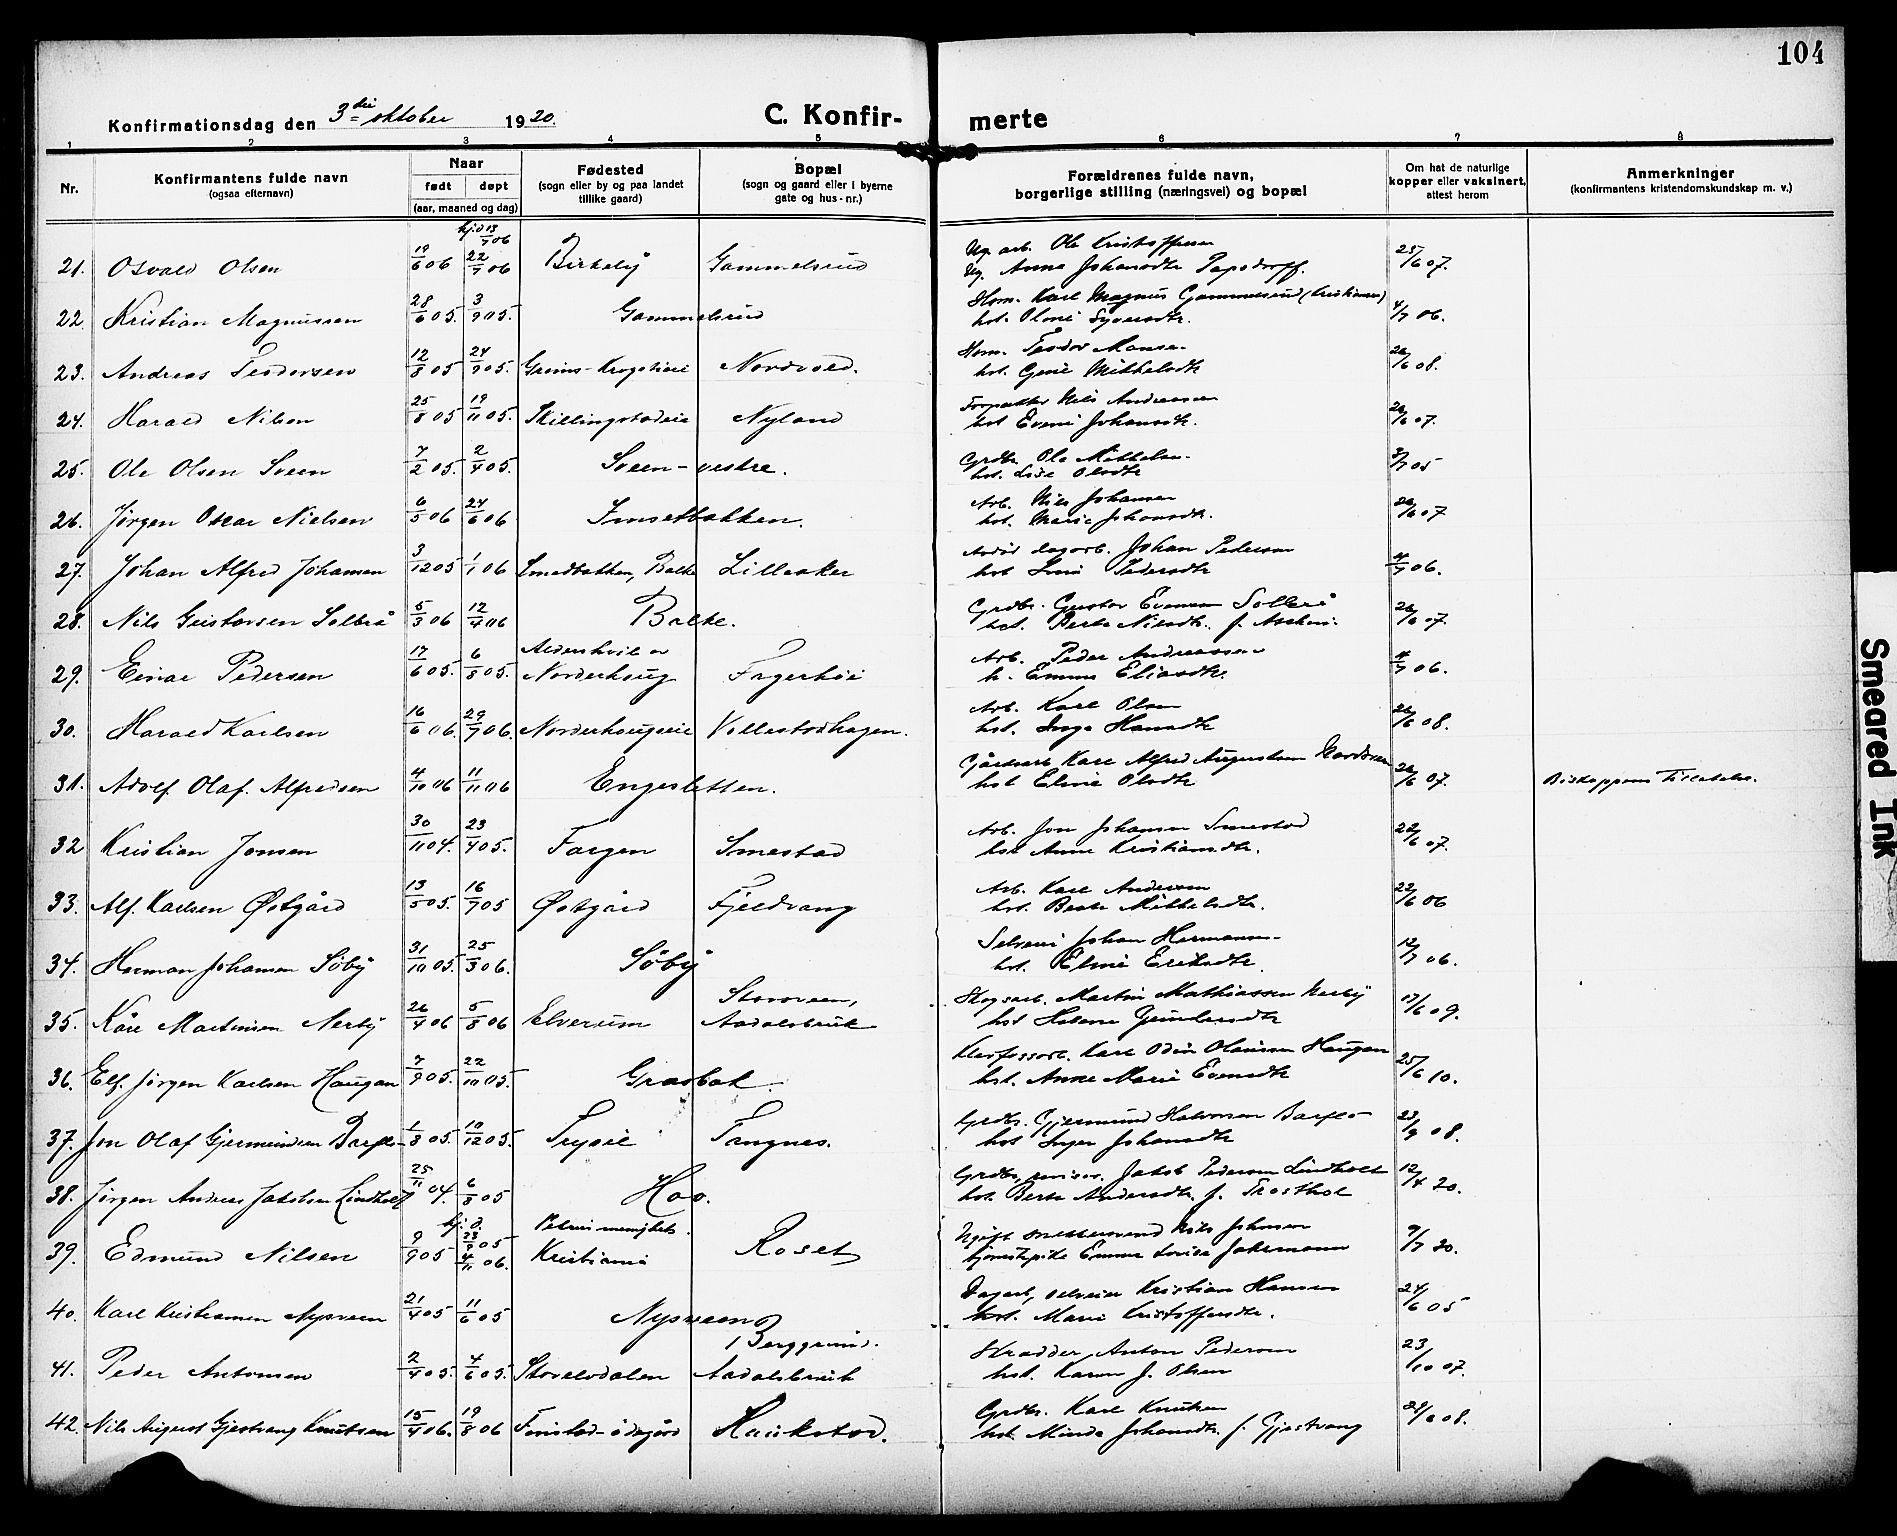 104
Konfirmationsdag den 3die oktober 1920. C. Konfir- merte
1 2 3 4 5 6 7 8
Nr. Konfirmantens fulde navn (ogsaa efternavn) Naar født døpt (aar, maaned og dag) Fødested (sogn eller by og paa landet tillike gaard) Bopæl (sogn og gaard eller i byerne gate og hus-nr.) Forældrenes fulde navn, borgerlige stilling (næringsvei) og bopæl Om hat de naturlige kopper eller vaksinert, attest herom Anmerkninger (konfirmantens kristendomskundskap m. v.)
21. Osvald Olsen 19/6 06 hj.d. 13/7 06 22/7 06 Birkely Gammelsrud Ug. arb. Ole Kristoffersen Ug. Anna Johansdtr. Papsdorff. 25/6 07.
22. Kristian Magnussen 28/6 05. 3/9 05. Gammelsrud Hsm. Karl Magnus Gammelsrud (Kristiansen) hst. Oline Syversdtr. 4/7 06.
23. Andreas Teodorsen 12/8 05 24/9 05. Grims-Krogstieie Nordvold. Hsm. Teodor hst. Gine Mikkelsdtr 26/6 08.
24. Harald Nilsen 25/8 05 19/11 05. Skillingstadeie Nyland Forpakter Nils Andreassen hst Evine Johansdtr. 26/6 07.
25. Ole Olsen Sveen 7/2 05. 2/4 05. Sveen-vestre. Grdbr. Ole Mikkelsen hst. Lise Olsdtr 3/7 05
26. Jørgen Oskar Nielsen 6/5 06 24/6 06 Imsetbakken. Arb. Nils Johansen hst. Marie Johansdtr. 26/6 07
27. Johan Alfred Johansen 3/12 05 1/1 06 Smedbakken, Balke Lilleaker dagarb. Johan Pedersen hst Pedersdtr 4/7 06.
28. Nils Gustavsen Solberg 5/3 06 12/4 06 Balke. Grdbr. Gustav Evensen hst. Berte Nilsdtr. f. 26/6 07.
29. Einar Pedersen 17/6 05. 6/8 05. Norderhoug Fagerhøi Arb. Peder Andreassen h. Emma Eliasdtr. 4/7 06.
30. Harald Karlsen 16/6 06. 29/7 06. Norderhougeie Vollestadhagen. Arb. Karl Olsen hst. Inga Hansdtr 26/6 08.
31. Adolf Olaf Alfredsen 4/10 06 11/11 06 Engesletten. Gårdsarb. Karl Alfred Augustsen hst Eline Olsdtr 26/6 07. Biskoppens tilladelse.
32 Kristian Jonsen 30/11 04. 23/4 05. Fargen Smestad Arb. Jon Johansen Smestad hst Anne Kristiansdtr. 22/6 07.
33. Alf. Karlsen Østgård 13/5 05. 16/7 05 Østgård Fjeldvang Arb. Karl Andersen hst. Berte Mikkelsdtr. 22/6 06
34. Herman Johansen Søby 31/10 05. 25/3 06. Søby Selveier Johan Hermans- hst. Eline Eriksdtr. 12/7 06.
35. Kåre Martinsen Nerby 26/4 06 5/8 06 Elverum Storsveen, Aadalsbruk Skogsarb. Martin Mathiassen Nerby hst Helene Gundersdtr 17/6 09.
36. Elf. Jørgen Karlsen Haugan 7/9 05. 22/10 05. Grasbak Klevfossarb. Karl Odin Olaussen Haugan hst. Anne Marie Evensdtr 25/6 10.
37. Jon Olaf Gjermundsen Barflo 1/8 05. 10/12 05. Trysil Tangnes. Grdbr. Gjermund Halvorsen Barflo hst Inger Johansdtr 23/9 08.
38. Jørgen Andreas Jakobsen Lindholt 25/11 04. 6/8 05 Hov. Grdbr. Jakob Pedersen Lindholt hst. Berte Andersdtr. f. Frosthol 12/4 20.
39. Edmund Nilsen 9/9 05 hj. d. 23/9 05 4/11 06. Petrus menighet. Kristiania Roset Ugift Nils Johnsen tjenestepike Emma Lovise 9/7 20.
40. Karl Kristiansen Nysveen 21/4 05 11/6 05 Nysveen Dagarb, selveier Kristian Hansen hst. Marie Kristoffersdtr. 24/6 05
41. Peder Antonsen 2/4 05. 4/6 05. Storelvdalen Berggrund. Aadalsbruk Skrædder Anton Pedersen hst. Karen J. Olsen 23/10 07.
42. Nils August Gjestvang Knutsen 15/4 06. 19/8 06 Finstad-ødegård Huskstad. Grdbr. Karl Knutsen hst. Minda Johansdtr. f. Gjestvang 24/6 08.
Smeared Ink